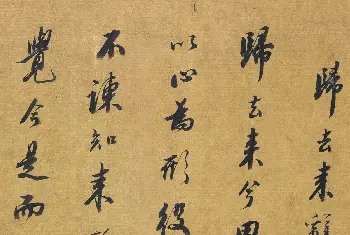 歸去来辭
歸去来兮田
以心為形役
不諫知来
覺今是而